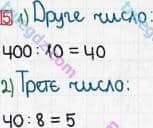 5 1) Друге число:
400 : 10 = 40
2) Третє число:
40 : 8 = 5